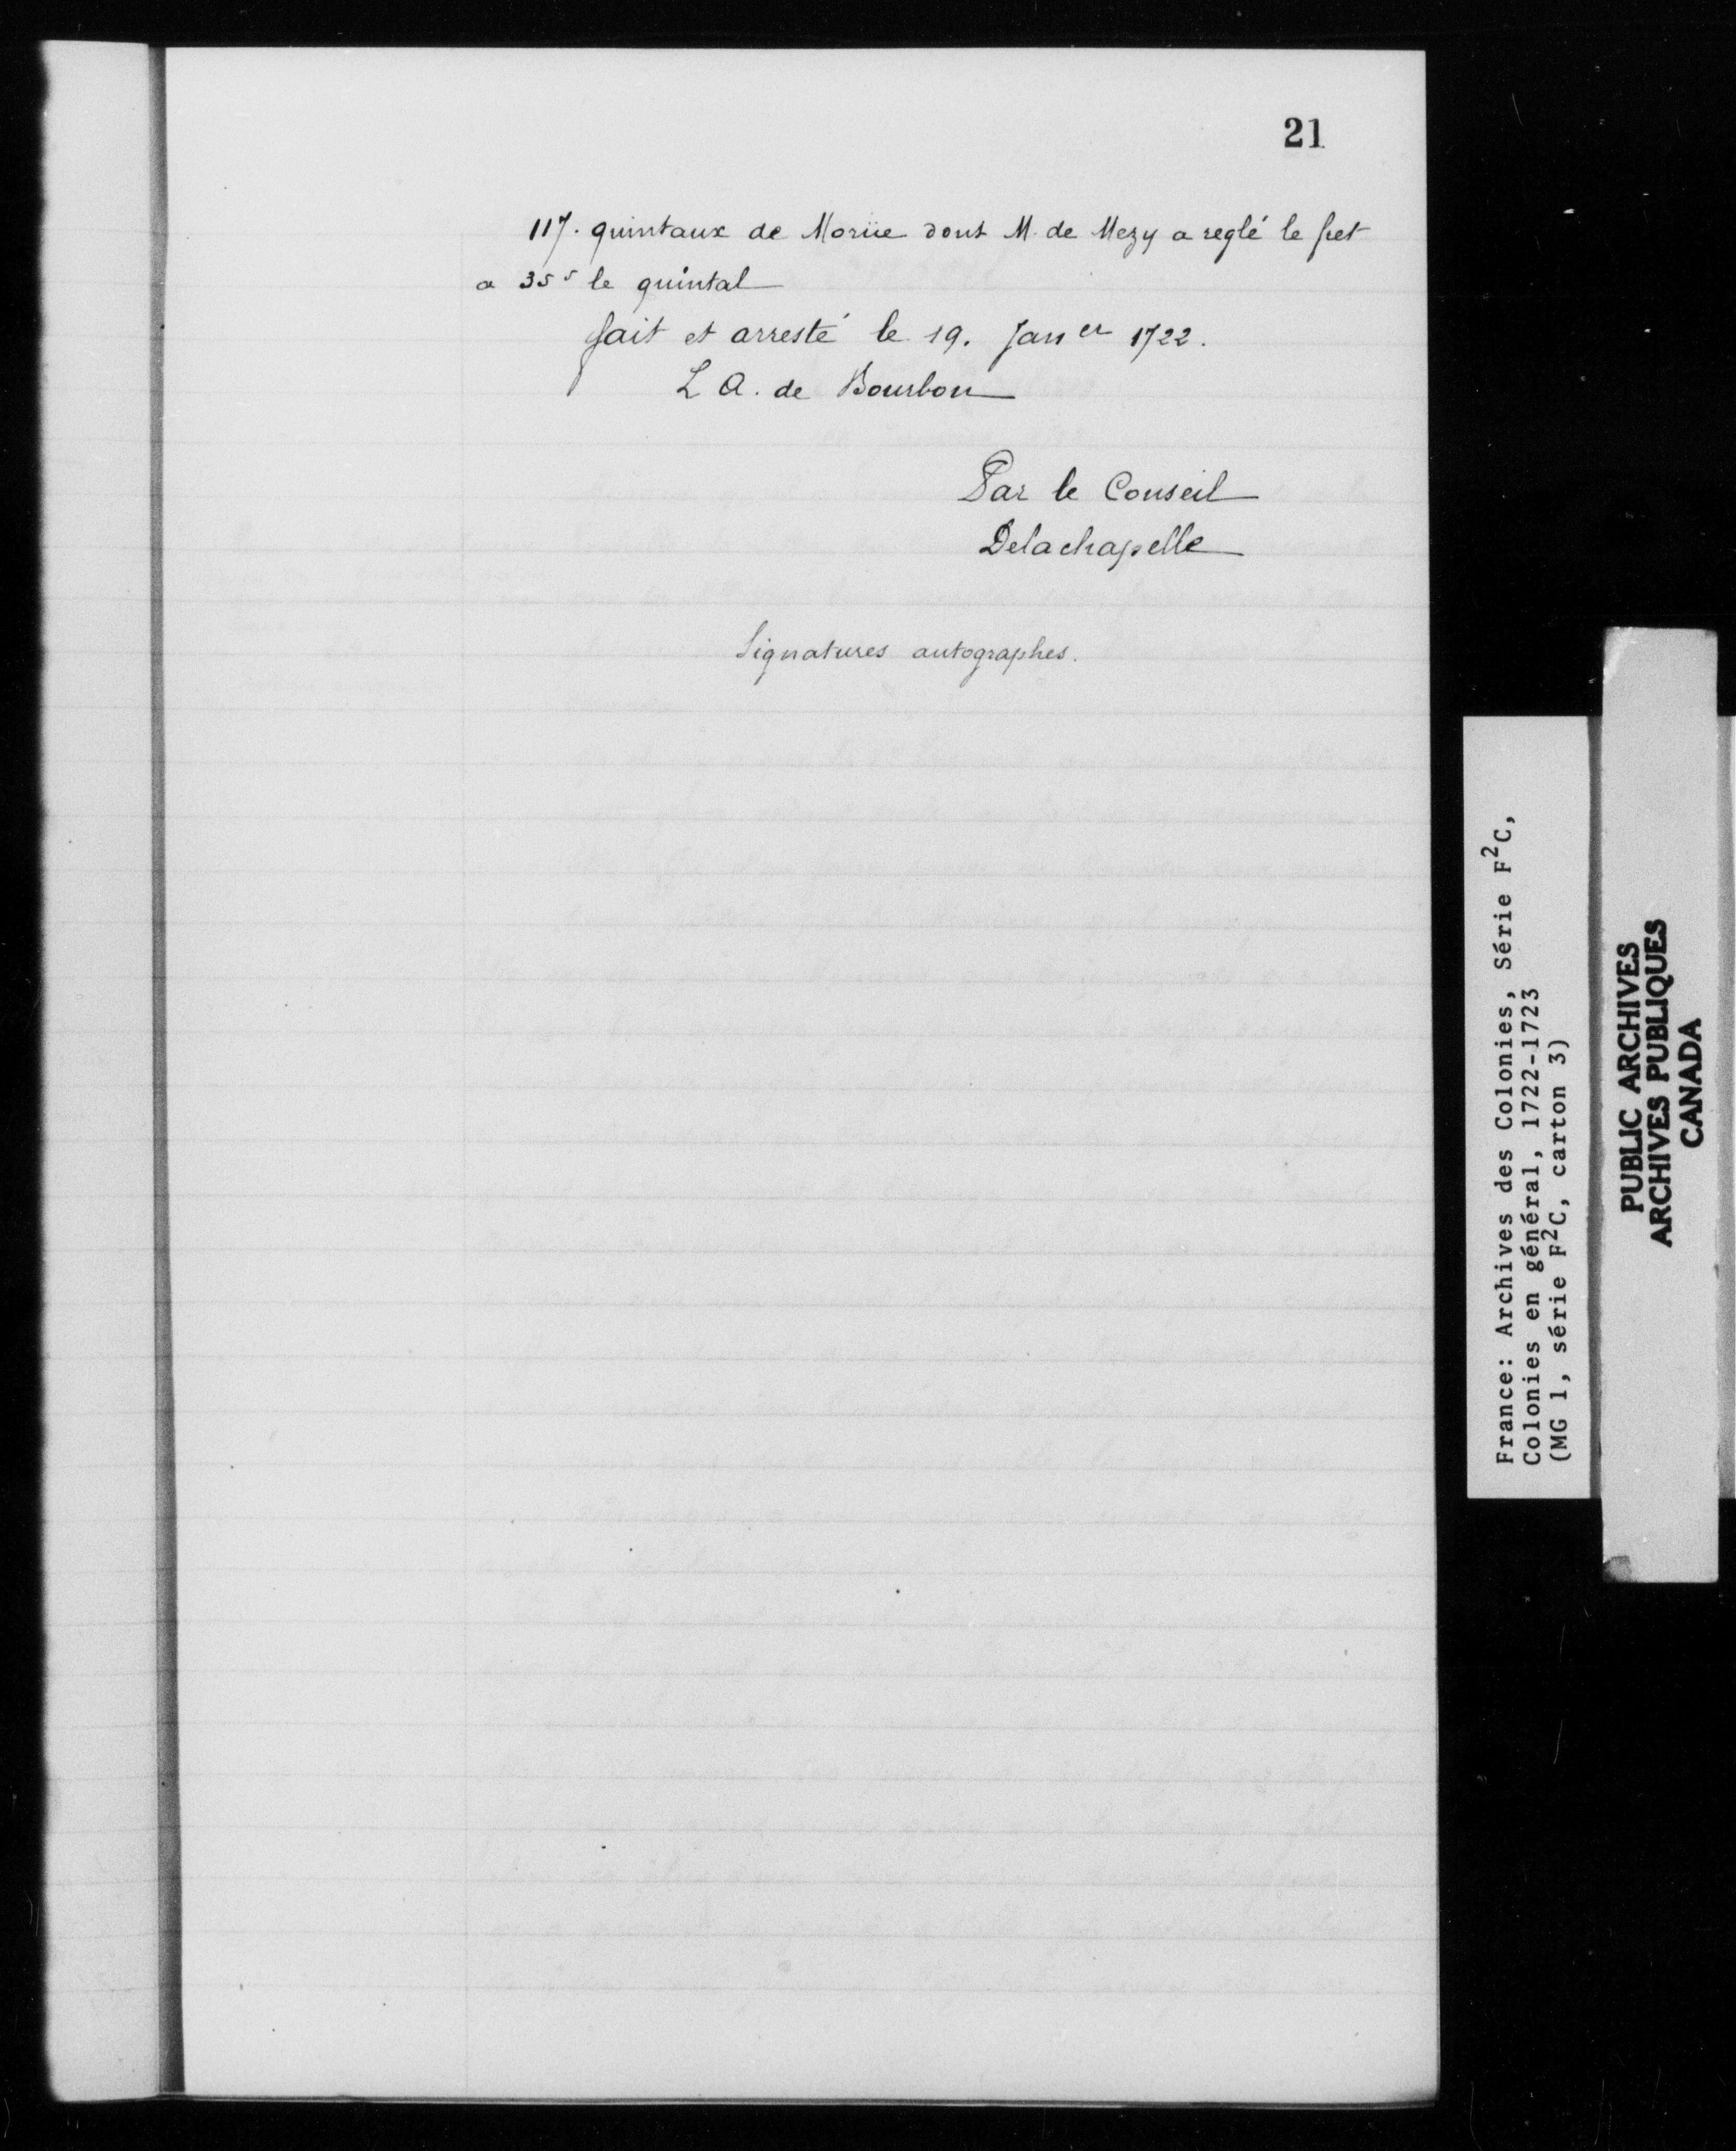 21
117. quintaux de Moriie dont M. de Mezy a reglé le fret
a 35 s le quintal
fait et arresté le 19. Jan er 1722.
L A. de Bourbon
Par le Conseil
Delachapelle
Signatures autographes.
France: Archives des Colonies, Série F²C,
Colonies en général, 1722-1723
(MG 1, série F²C, carton 3)
PUBLIC ARCHIVES
ARCHIVES PUBLIQUES
CANADA